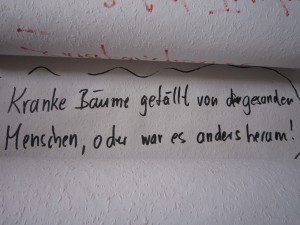 Kranke Bäume gefällt von gesunden
Menschen, oder war es anders herum!